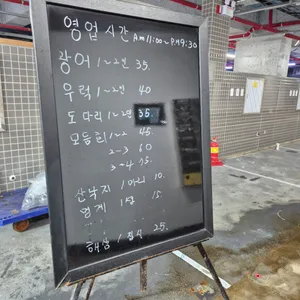 영업시간 AM11:00~PM9:30
광어 1~2인 35.
우럭 1~2인 40
도다리 1~2인 35.
모듬회 1~2 45
2-3 60
3-4 75.
산낙지 1마리 10.
멍게 1접 15.
해삼 1접시 25.